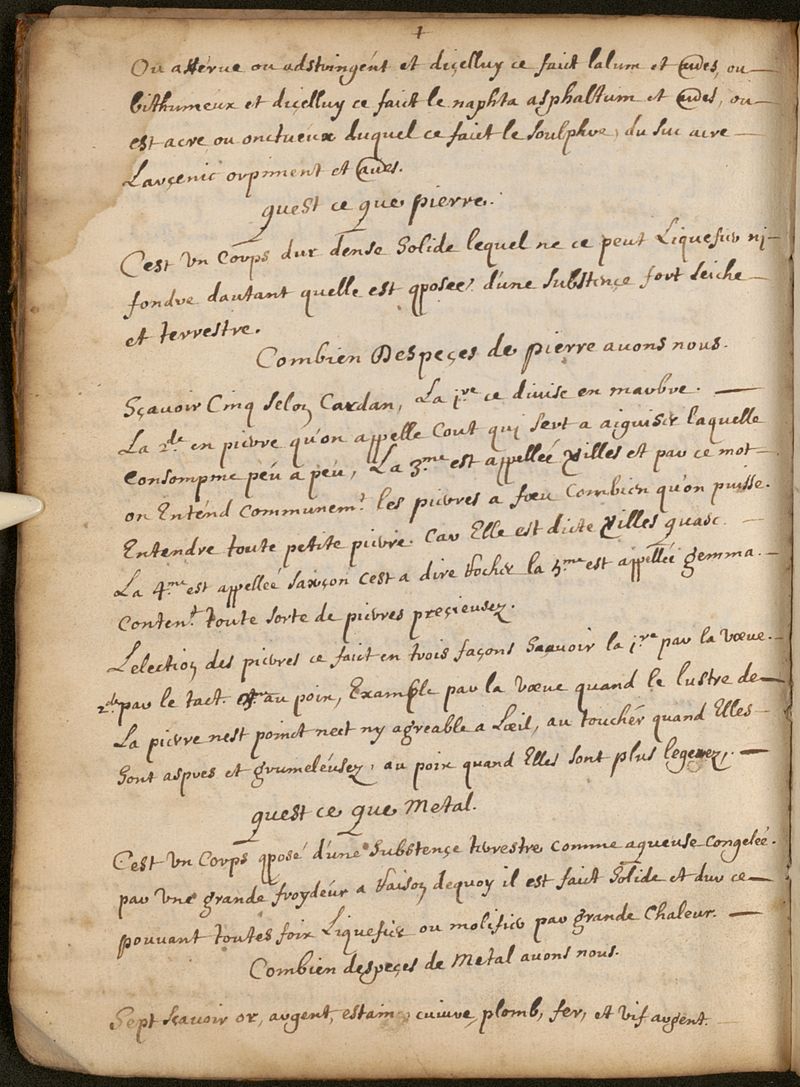 Ou atterue ou adstringent et dicelluy ce faict lalum et aues, ou
bithumeux et dicelluy ce faict le naphta asphaltum et aues, ou
est acre ou onctueux duquel ce faict le soulphre, du suc acre
Larcenic orpiment et aues.
quest ce que pierre.
Cest un Corps dur dense solide lequel ne ce peut Liquefier ni
fondre dautant quelle est qposee d'une substençe fort seiche
et terrestre.
Combien Despeçes de pierre avons nous.
Sçavoir Cinq selon Cardan, La 1re ce divise en marbre.
La 2de en pierre qu'on appelle Cout qui sert a aiguiser laquelle
consompme peu a peu, La 3me est appelleé xilles et par ce mot
on Entend communemt les pierres a feu Combien qu'on puisse
Entendre toute petite pierre. Car Elle est dicte xilles quasi.
La 4me est appelleé saxçon cest a dire Rocher la 5me est appelleé gemma.
Content toute sorte de pierres preçieusez.
Lelection des pierres ce faict en trois façons Sçavoir la 1re par la vœue.
2de par le tact. au poix, Example par la vœue quand le lustre de
La pierre nest poinct nect ny agreable a Lœil, au toucher quand Elles
sont aspres et grumeleusez, au poix quand Elles sont plus legerez,.
quest ce que Metal.
Cest un Corps qposé d'une substençe terrestre comme aqueuse congeleé.
par une grande froydeur a Raison dequoy il est faict solide et dur ce
pouvant toutes foix Liquefier ou molifier par grande Chaleur.
Combien despeçes de Metal avons nous.
Sept sçavoir or, argent, estain, cuivre, plomb, fer, et vif argent.